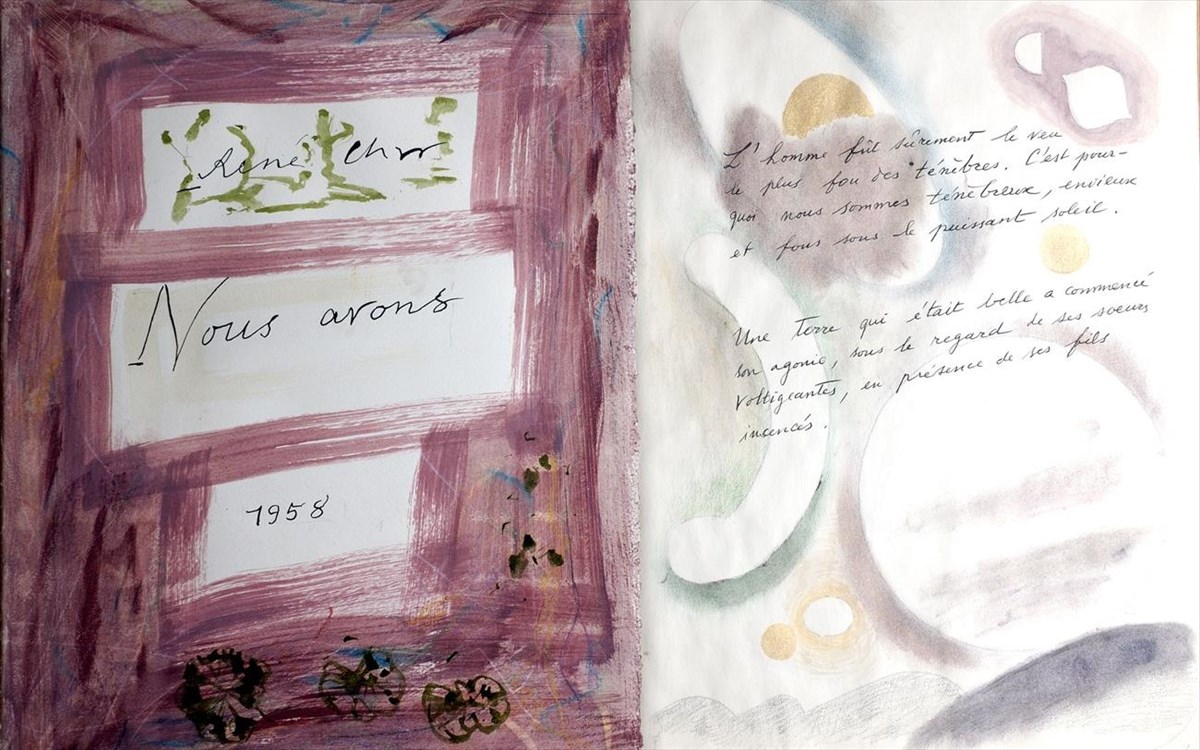 René Char
Nous avons
1958
L'homme fût sûrement le veu
le plus fou des ténèbres. C'est pour-
quoi nous sommes ténébreux, envieux
et fous sous le puissant soleil.
Une Terre qui était belle a commencé
son agonie, sous le regard de ses soeurs
voltigeantes, en présence de ses fils
insencés.